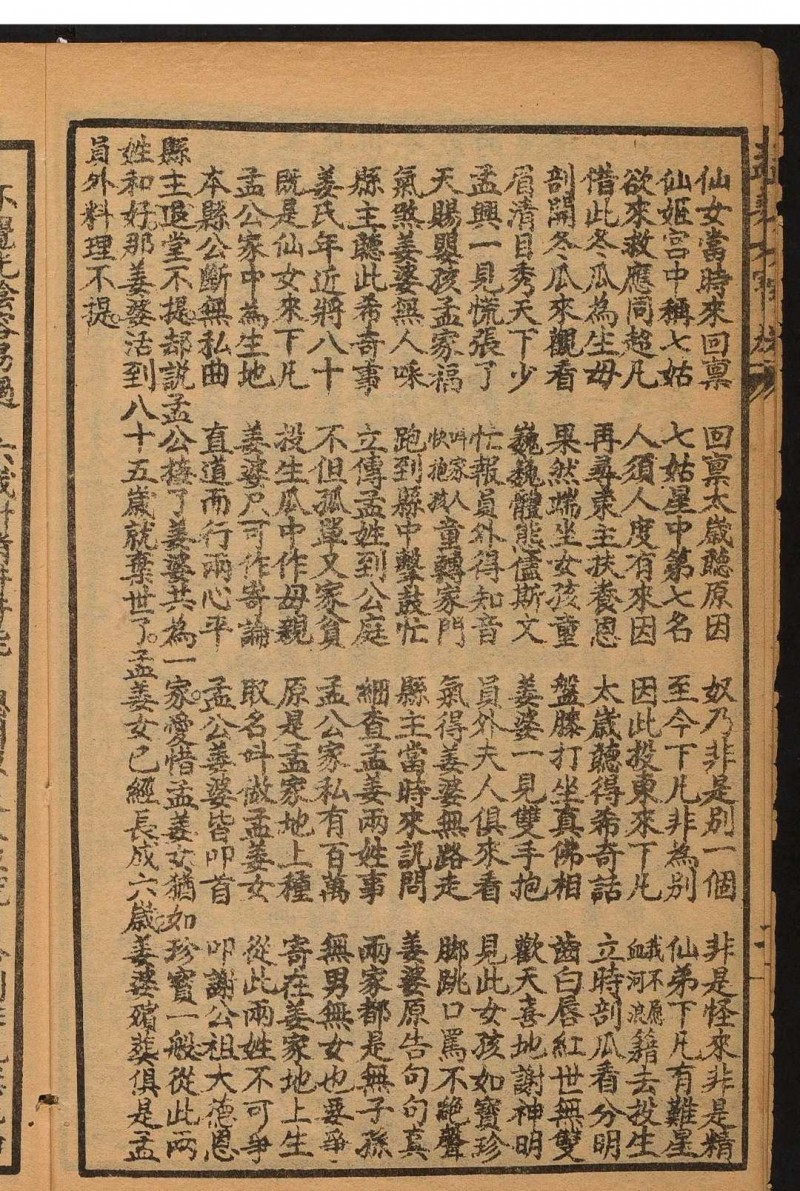 仙女當時來回禀　回禀太歲聽原因　奴乃非是別一個　非是怪來非是精
仙姬宮中稱七姑　七姑星中第七名　至今下凡非為別　仙弟下凡有難星
欲來救應同超凡　人須人度有來因　因此投東來下凡　我不愿血河浪籍去投生
借此冬瓜為生母　再尋東主扶養恩　太歲聽得希奇話　立時剖瓜看分明
剖開冬瓜來觀看　果然端坐女孩童　盤膝打坐真佛相　齒白唇紅世無雙
眉清目秀天下少　巍巍體態儘斯文　姜婆一見雙手抱　歡天喜地謝神明
孟興一見慌張了　忙報員外得知音　員外夫人俱來看　見此女孩如寶珍
天賜嬰孩孟家福　叫家人快抱孩童轉家門　氣得姜婆無路走　脚跳口罵不絕聲
氣煞姜婆無人睬　跑到縣中擊鼓忙　縣主當時來訊問　姜婆原告句句真
縣主聽此希奇事　立傳孟姓到公庭　細查孟姜兩姓事　兩家都是無子孫
姜氏年近將八十　不但孤單又家貧　孟公家私有百萬　無男無女也要爭
既是仙女來下凡　投生瓜中作母親　原是孟家地上種　寄在姜家地上生
孟公家中為生地　姜婆只可作寄論　取名叫做孟姜女　從此兩姓不可爭
本縣公斷無私曲　直道而行兩心平　孟公姜婆皆叩首　叩謝公祖大德恩
縣主退堂不提。却說孟公接了姜婆共為一家。愛惜孟姜女猶如珍寶一般從此兩
姓和好。那姜婆活到八十五歲就棄世了。孟姜女已經長成六歲。姜婆殯葬俱是孟
員外料理不提